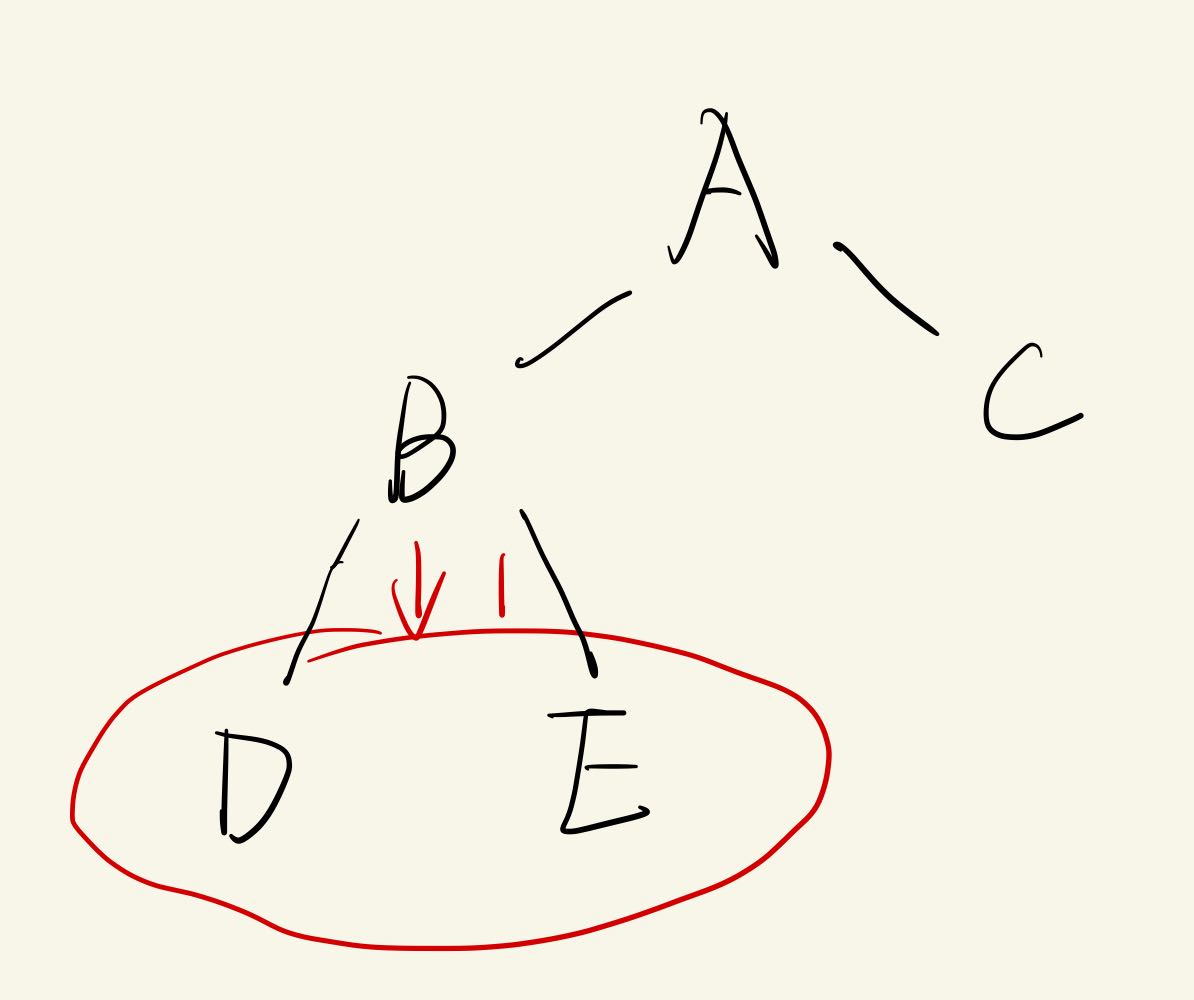 A
B C
↓ 1
D E